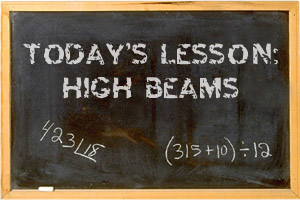 TODAY'S LESSON:
HIGH BEAMS
423⌊18
(315+10)÷12